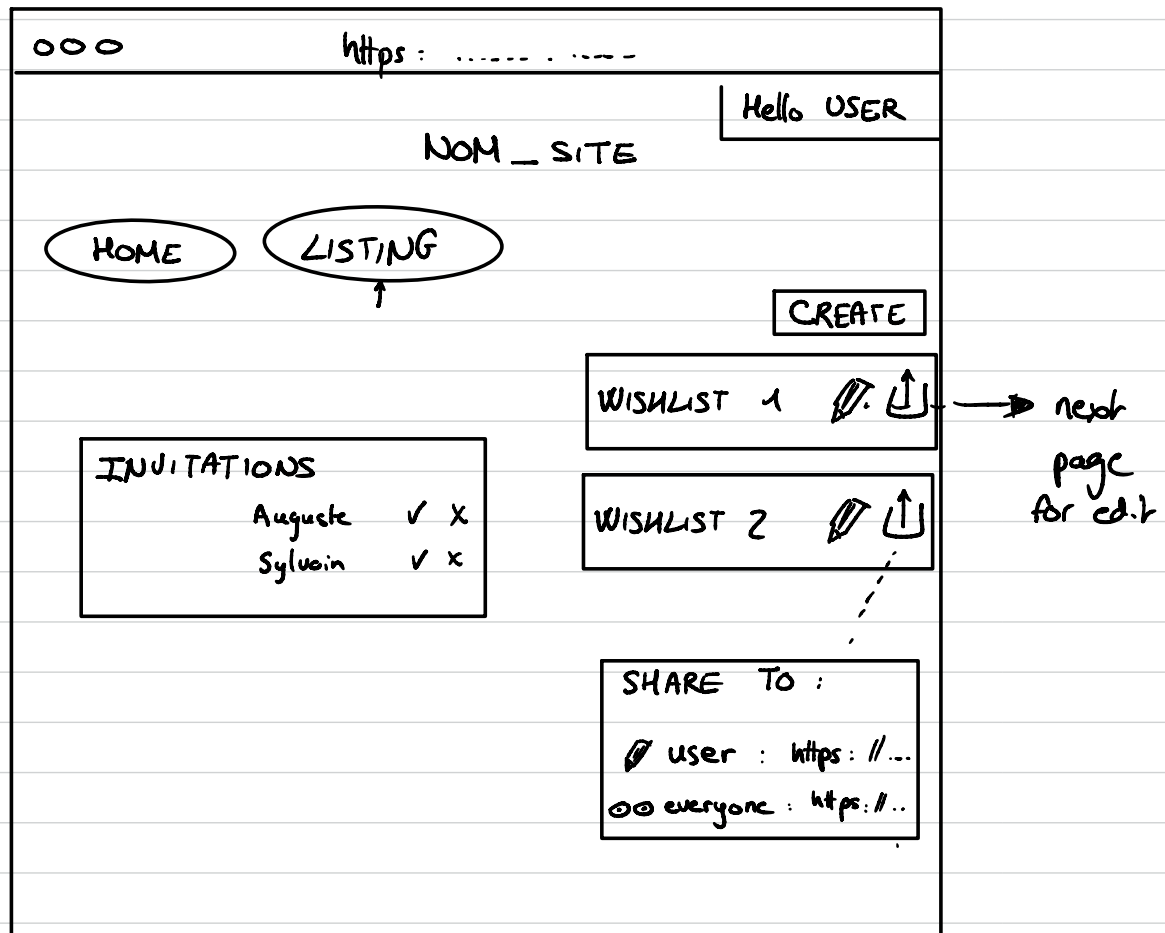 https : ....... . .....
Hello USER
NOM_SITE
HOME
LISTING
CREATE
WISHLIST 1
next
page
for edit
INVITATIONS
Auguste ✓ x
Sylvain ✓ x
WISHLIST 2
SHARE TO :
user : https : // ...
everyone : https : // ..